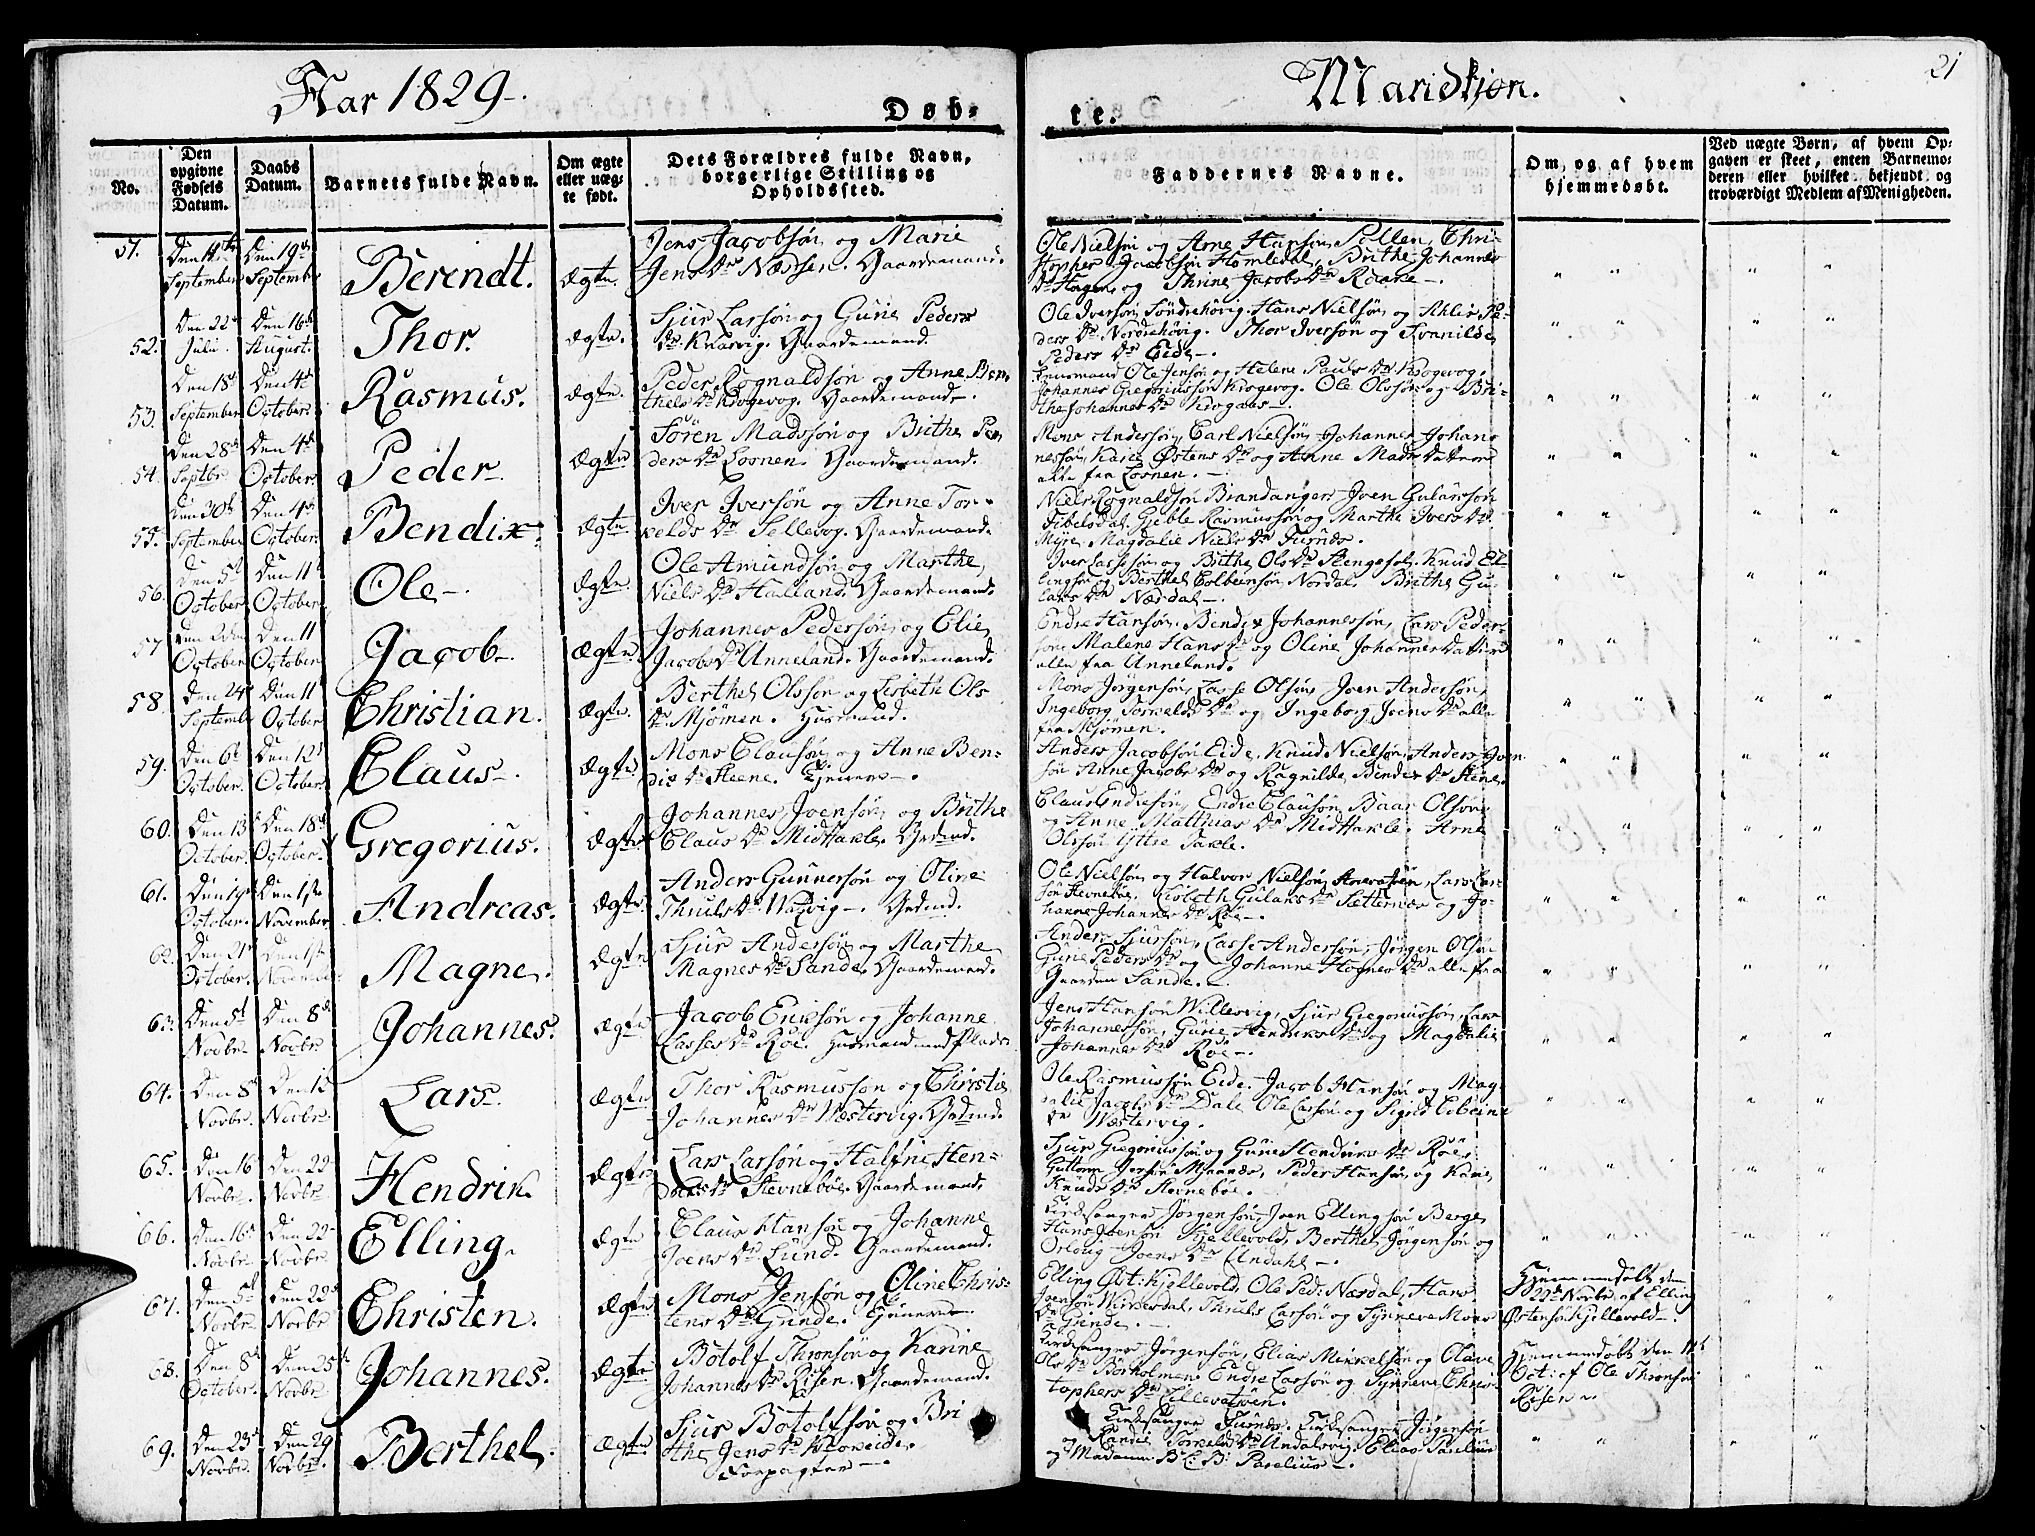 Aar 1829.
Mandkjøn.
21
Døb-
te.
No.
Den opgivne Fødsels Datum.
Daabs Datum.
Barnets fulde Navn.
Om ægte eller uægte født.
Dets Forældres fulde Navn, borgerlige Stilling og Opholdssted.
Faddernes Navne.
Om, og af hvem hjemmedøbt.
Ved uægte Børn, af hvem Opgaven er skeet, enten Barnemoderen eller hvilket bekjendt og troværdigt Medlem af Menigheden.
51.
Den 19de
September
September
Berendt.
Ægte.
Jens Jacobsøn og Marie
Jens Dr Gaardemand.
Ole Nielsøn og Arne Hansøn Chri-
stopher Jacobsøn Brithe Johannes
Dr Hagen og Thrine Jacobs Dr
52.
Den 22de Julii.
Den 16de August.
Thor.
Ægte.
Sjur Larsøn og Gurie Peders
Dr Knarvig. Gaardemand.
Ole Iversøn Søndrehövig. Hans Nielsøn og
ders Dr Nordrehövig. Thor Iversøn og Svanilde
Peders Dr Eide.
53.
Den 18de September
Den 4de October.
Rasmus.
Ægte.
Peder Rognaldsøn og Anne Ber-
thels Dr Gaardemand.
Lensmand Ole Jensøn og Helene Pauls Dr
Johannes Gregoriussøn Ole Olssøn og Bri-
the Johannes Dr
54.
Den 28de Septbr.
Den 4de October
Peder
Ægte
Sören Madssøn og Brithe Pe-
ders Dr Losnen. Gaardemand.
Mons Andersøn, Carl Nielsøn, Johannes Johan-
nessøn, Karie Østens Dr og Anne Mads Datter
alle fra Losnen.
55.
Den 30te September
Den 4de October.
Bendix.
Ægte
Iver Iversøn og Anne Tor-
kelds Dr Sellevog. Gaardemand.
Niels Rognaldsøn Brandanger, Joen Gulacsøn
Gieble Rasmussøn og Marthe Ivers Dr
Myre, Magdalie Niels Dr Furnes.
56.
Den 5te October
Den 11te October
Ole.
Ægte.
Ole Amundsøn og Marthe
Niels Dr Halland. Gaardemand.
Iver Lassesøn og Brithe Ols Dr Knud El-
lingsøn og Berthel Colbeinsøn Nordal. Brithe Gu-
lacs Dr Nærdal.
57
October
Den 11 October
Jacob.
Ægte.
Johannes Pedersøn og Elie
Jacobs Dr Anneland. Gaardemand.
Endre Hansøn, Bendix Johannessøn, Lars Peder-
søn, Malene Hans Dr og Oline Johannes Datter
alle fra Anneland.
58.
Den 24 Septembr
Den 11te October
Christian.
Ægte.
Berthel Olssøn og Lisbeth Ols
Dr Mjömen. Husmand.
Mons Jörgensøn, Lasse Olsøn, Joen Andersøn,
Ingeborg Torkelds Dr og Ingeborg Joens Dr alle
fra Mjömen.
59.
Den 6te October.
Den 12te October.
Claus.
Ægte
Mons Clausøn og Anne Ben-
dix Dr Steene. Tjenere.
Anders Jacobsøn Eide, Knud Nielsøn, Anders Joen-
søn Anne Jacobs Dr og Ragnilde Bendix Dr Stene.
60.
Den 13de October.
Den 18de October.
Gregorius.
Ægte.
Johannes Joensøn og Brithe
Claus Dr MidTakle. Grdmd.
Claus Endresøn, Endre Clausøn, Baar Olsøn
og Anne Matthias Dr MidTakle. Arne
Olssøn Yttre Takle.
61.
Den 19de October.
Den 1ste November
Andreas.
Ægte.
Anders Gunnersøn og Oline
Thruls Dr Wadvig. Grdmd.
Ole Nielsøn og Halvor Nielsøn Lars Lar-
søn Stevneböe, Lisbeth Gulacs Dr Setternæs og Jo-
hanne Johannes Dr Röe.
62.
Den 21de October.
Den 1ste
Magne.
Ægte.
Sjur Andersøn og Marthe
Magnes Dr Sande. Gaardemand.
Anders Sjursøn, Lasse Andersøn, Jörgen Olsøn
Gurie Peders Dr og Johanne Hognes Dr alle fra
Gaarden Sande.
63.
Den 5te Novbr.
Den 8de Novbr
Johannes.
Ægte
Jacob Ericksøn og Johanne
Lasses Dr Röe. Husmand med Plads.
Jens Hansøn Willesvig, Sjur Gregoriussøn, Lars
Johannessøn, Gurie Hendriks Dr og Magdalie
Johannes Dr Röe.
64.
Den 8de Novbr.
Den 15 Novbr
Lars.
Ægte
Thor Rasmussøn og Christie
Johannes Dr Westervig. Grdmd.
Ole Rasmussøn Eide. Jacob Hansøn og Mag-
dalie Jacobs Dr Dale Ole Larsøn og Sigrid Colbeins
Dr Westervig.
65.
Den 16 Novbr.
Den 22 Novbr
Hendrik.
Ægte
Lars Larsøn og Halfrie Hen-
driks Dr Stevneböe. Gaardemand.
Sjur Gregoriussøn og Gurie Hendriks Dr Röe,
Guttorm Iversøn Peder Hansøn og Karie
Knuds Dr Stevneböe.
66.
Den 16de Novbr.
Den 22 Novbr.
Elling.
Ægte
Claus Hansøn og Johanne
Joens Dr Lund. Gaardemand.
Kirkesanger Jörgensøn, Joen Ellingsøn Berge,
Hans Joensøn Kjellevold, Berthel Jörgensøn og
Joens Dr Undahl.
67.
Den 5te Novbr
Den 22de Novbr
Christen.
Ægte
Mons Jensøn og Oline Chris-
tens Dr Giende. Tjenere.
Elling Øst: Kjellevold, Ole Ped: Nærdal, Hans
Joensøn Thruls Larsøn og Synneve Mons
Dr Giende.
Hjemmedöbt den
22de Novbr. af Elling
Østensøn Kjellevold.
68.
Den 8de October.
Den 25de Novbr.
Johannes.
Ægte
Botolf Thronsøn og Karine
Johannes Dr Risen. Gaardemand.
Kirkesanger Jörgensøn, Elias Mikkelsøn og Olave
Ols Dr Börholmen. Endre Larsøn og Synneve Chris-
tophers Dr
Hjemmedöbt den 11te
Oct: af Ole Thronsøn
Risen.
69.
Den 23de Novbr.
Den 29 Novbr.
Berthel.
Ægte
Sjur Botolfsøn og Bri
the Jens Dr
Forpagter.
Kirkesanger Furnes. Kirkesanger Jörgensøn
og Torkelds Dr Undalsvig. Elias Paselius
og Madamm B: C: B: Paselius.